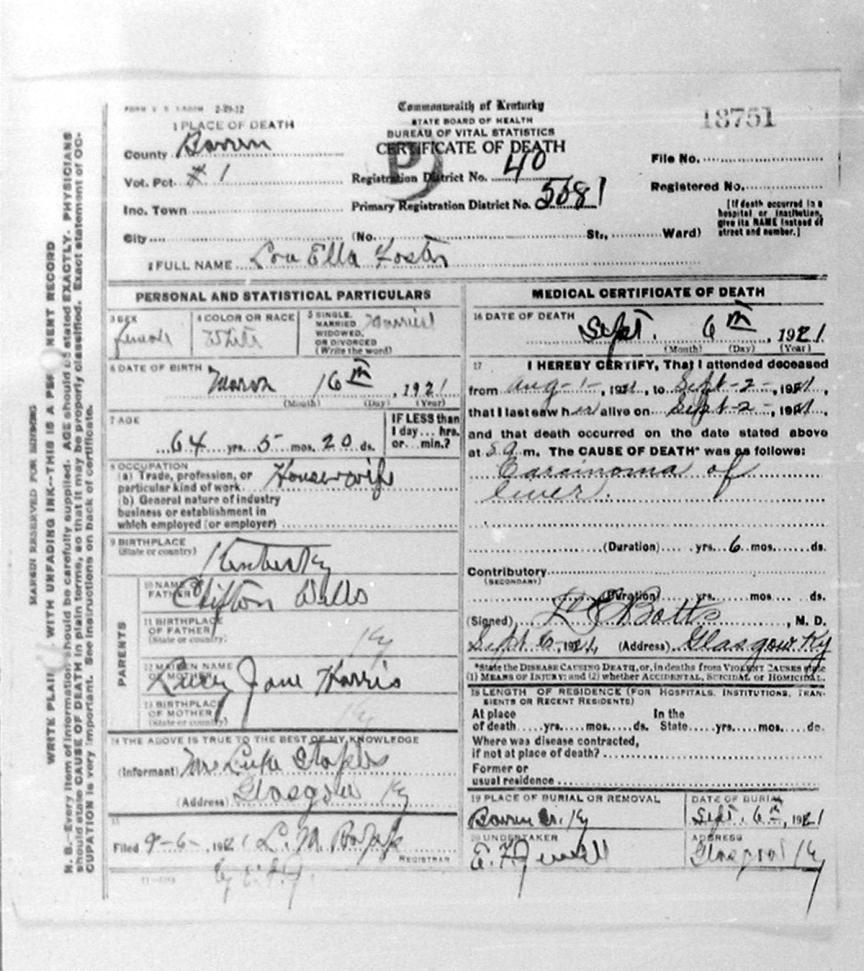 2-29-12
Commonwealth of Kentucky
STATE BOARD OF HEALTH
BUREAU OF VITAL STATISTICS
CERTIFICATE OF DEATH
18751
1 PLACE OF DEATH
County Barren
Vot. Pct # 1
Inc. Town
City (No. St., Ward)
Registration District No. 40
Primary Registration District No. 5081
File No.
Registered No.
[If death occurred in a
hospital or institution,
give its NAME instead of
street and number.]
2 FULL NAME Lou Ella Foster
PERSONAL AND STATISTICAL PARTICULARS
3 SEX
Female
4 COLOR OR RACE
White
5 SINGLE,
MARRIED
WIDOWED,
OR DIVORCED
(Write the word)
Married
6 DATE OF BIRTH
March 16th, 1921
(Month) (Day) (Year)
7 AGE
64 yrs. 5 mos. 20 ds.
IF LESS than
1 day... hrs.
or... min.?
8 OCCUPATION
(a) Trade, profession, or
particular kind of work Housewife
(b) General nature of industry
business or establishment in
which employed (or employer)
9 BIRTHPLACE
(State or country)
PARENTS
10 NAME
FATHER
Clifton Wells
11 BIRTHPLACE
OF FATHER
(State or country)
Ky
12 MAIDEN NAME
OF MOTHER
Lucy Jane Harris
13 BIRTHPLACE
OF MOTHER
(State or country)
Ky
14 THE ABOVE IS TRUE TO THE BEST OF MY KNOWLEDGE
(Informant)
(Address) Glasgow Ky
15
Filed 9-6-, 1921 L. M.
REGISTRAR
MEDICAL CERTIFICATE OF DEATH
16 DATE OF DEATH
Sept. 6th, 1921
(Month) (Day) (Year)
17 I HEREBY CERTIFY, That I attended deceased
from Aug-1-, 1921, to Sept-2-, 1921,
that I last saw her alive on Sept-2-, 1921,
and that death occurred on the date stated above
at 5 a m. The CAUSE OF DEATH* was as follows:
Carcinoma of
liver.
(Duration) yrs. 6 mos. ds.
Contributory
(SECONDARY)
(Duration) yrs. mos. ds.
(Signed) Botts, M. D.
Sept 6, 1921, (Address) Glasgow, Ky
*State the DISEASE CAUSING DEATH, or, in deaths from VIOLENT CAUSES state
(1) MEANS OF INJURY; and (2) whether ACCIDENTAL, SUICIDAL or HOMICIDAL.
18 LENGTH OF RESIDENCE (FOR HOSPITALS, INSTITUTIONS, TRAN-
SIENTS OR RECENT RESIDENTS)
At place In the
of death yrs. mos. ds. State yrs. mos. ds.
Where was disease contracted,
if not at place of death?
Former or
usual residence
19 PLACE OF BURIAL OR REMOVAL
Barren Co. Ky
DATE OF BURIAL
Sept. 6th, 1921
20 UNDERTAKER
E. F. Jewell
ADDRESS
Glasgow Ky
MARGIN RESERVED FOR BINDING
WRITE PLAI WITH UNFADING INK--THIS IS A PE NENT RECORD
N. B.-Every item of information should be carefully supplied. AGE should be stated EXACTLY. PHYSICIANS
should state CAUSE OF DEATH in plain terms, so that it may be properly classified. Exact statement of OC-
CUPATION is very important. See instructions on back of certificate.